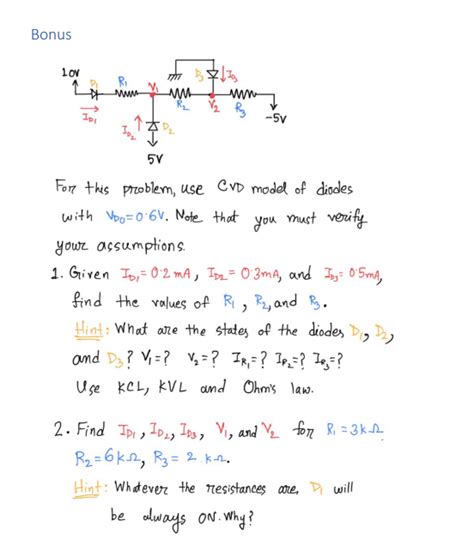 Bonus
10V
D1 R1 V1 D3 ID3
R2 V2 R3
ID1 ID2 D2 -5V
5V
For this problem, use CVD model of diodes
with VD0=0.6V. Note that you must verify
your assumptions.
1. Given ID1=0.2mA, ID2=0.3mA, and ID3=0.5mA,
find the values of R1, R2, and R3.
Hint: What are the states of the diodes, D1, D2,
and D3? V1=? V2=? IR1=? IR2=? IR3=?
Use KCL, KVL and Ohm's law.
2. Find ID1, ID2, ID3, V1, and V2 for R1=3kΩ
R2=6kΩ, R3=2kΩ.
Hint: Whatever the resistances are, D1 will
be always ON. Why?